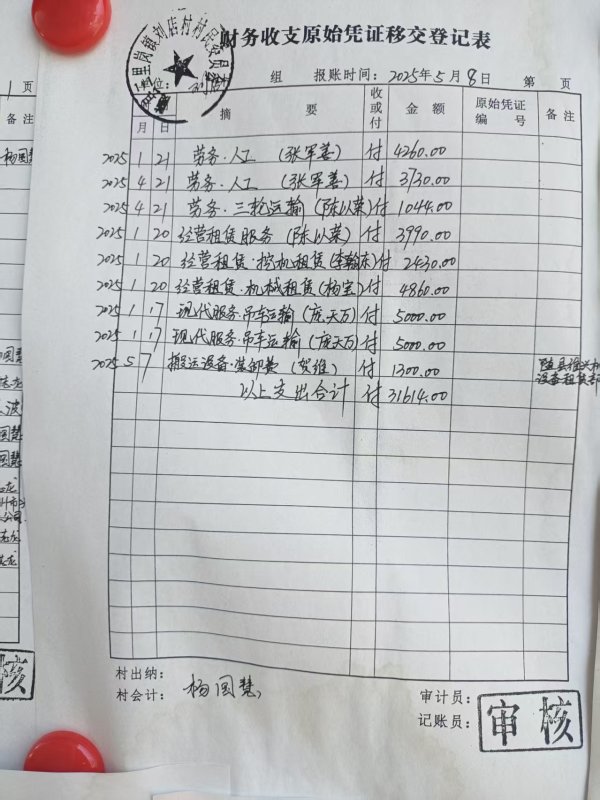 财务收支原始凭证移交登记表
里岗镇刘店村村民委员会
组 报账时间：2025年5月8日 第 页
月 日 摘 要 收或付 金 额 原始凭证编 号 备 注
2025 1 21 劳务·人工（张军善） 付 4260.00
2025 4 21 劳务·人工（张军善） 付 3730.00
2025 4 21 劳务·三轮运输（陈以荣） 付 1044.00
2025 1 20 经营租赁服务（陈以荣） 付 3990.00
2025 1 20 经营租赁·挖机租赁（李翰东） 付 2430.00
2025 1 20 经营租赁·机械租赁（杨宝） 付 4860.00
2025 1 17 现代服务·吊车运输（庞天万） 付 5000.00
2025 1 17 现代服务·吊车运输（庞天万） 付 5000.00
2025 5 7 搬运设备·装卸费（贺维） 付 1300.00
设备租赁部
以上支出合计 付 31614.00
村出纳：
村会计：杨国慧
审计员：
记账员：
审核
页
备 注
杨国慧
国慧
国慧
核